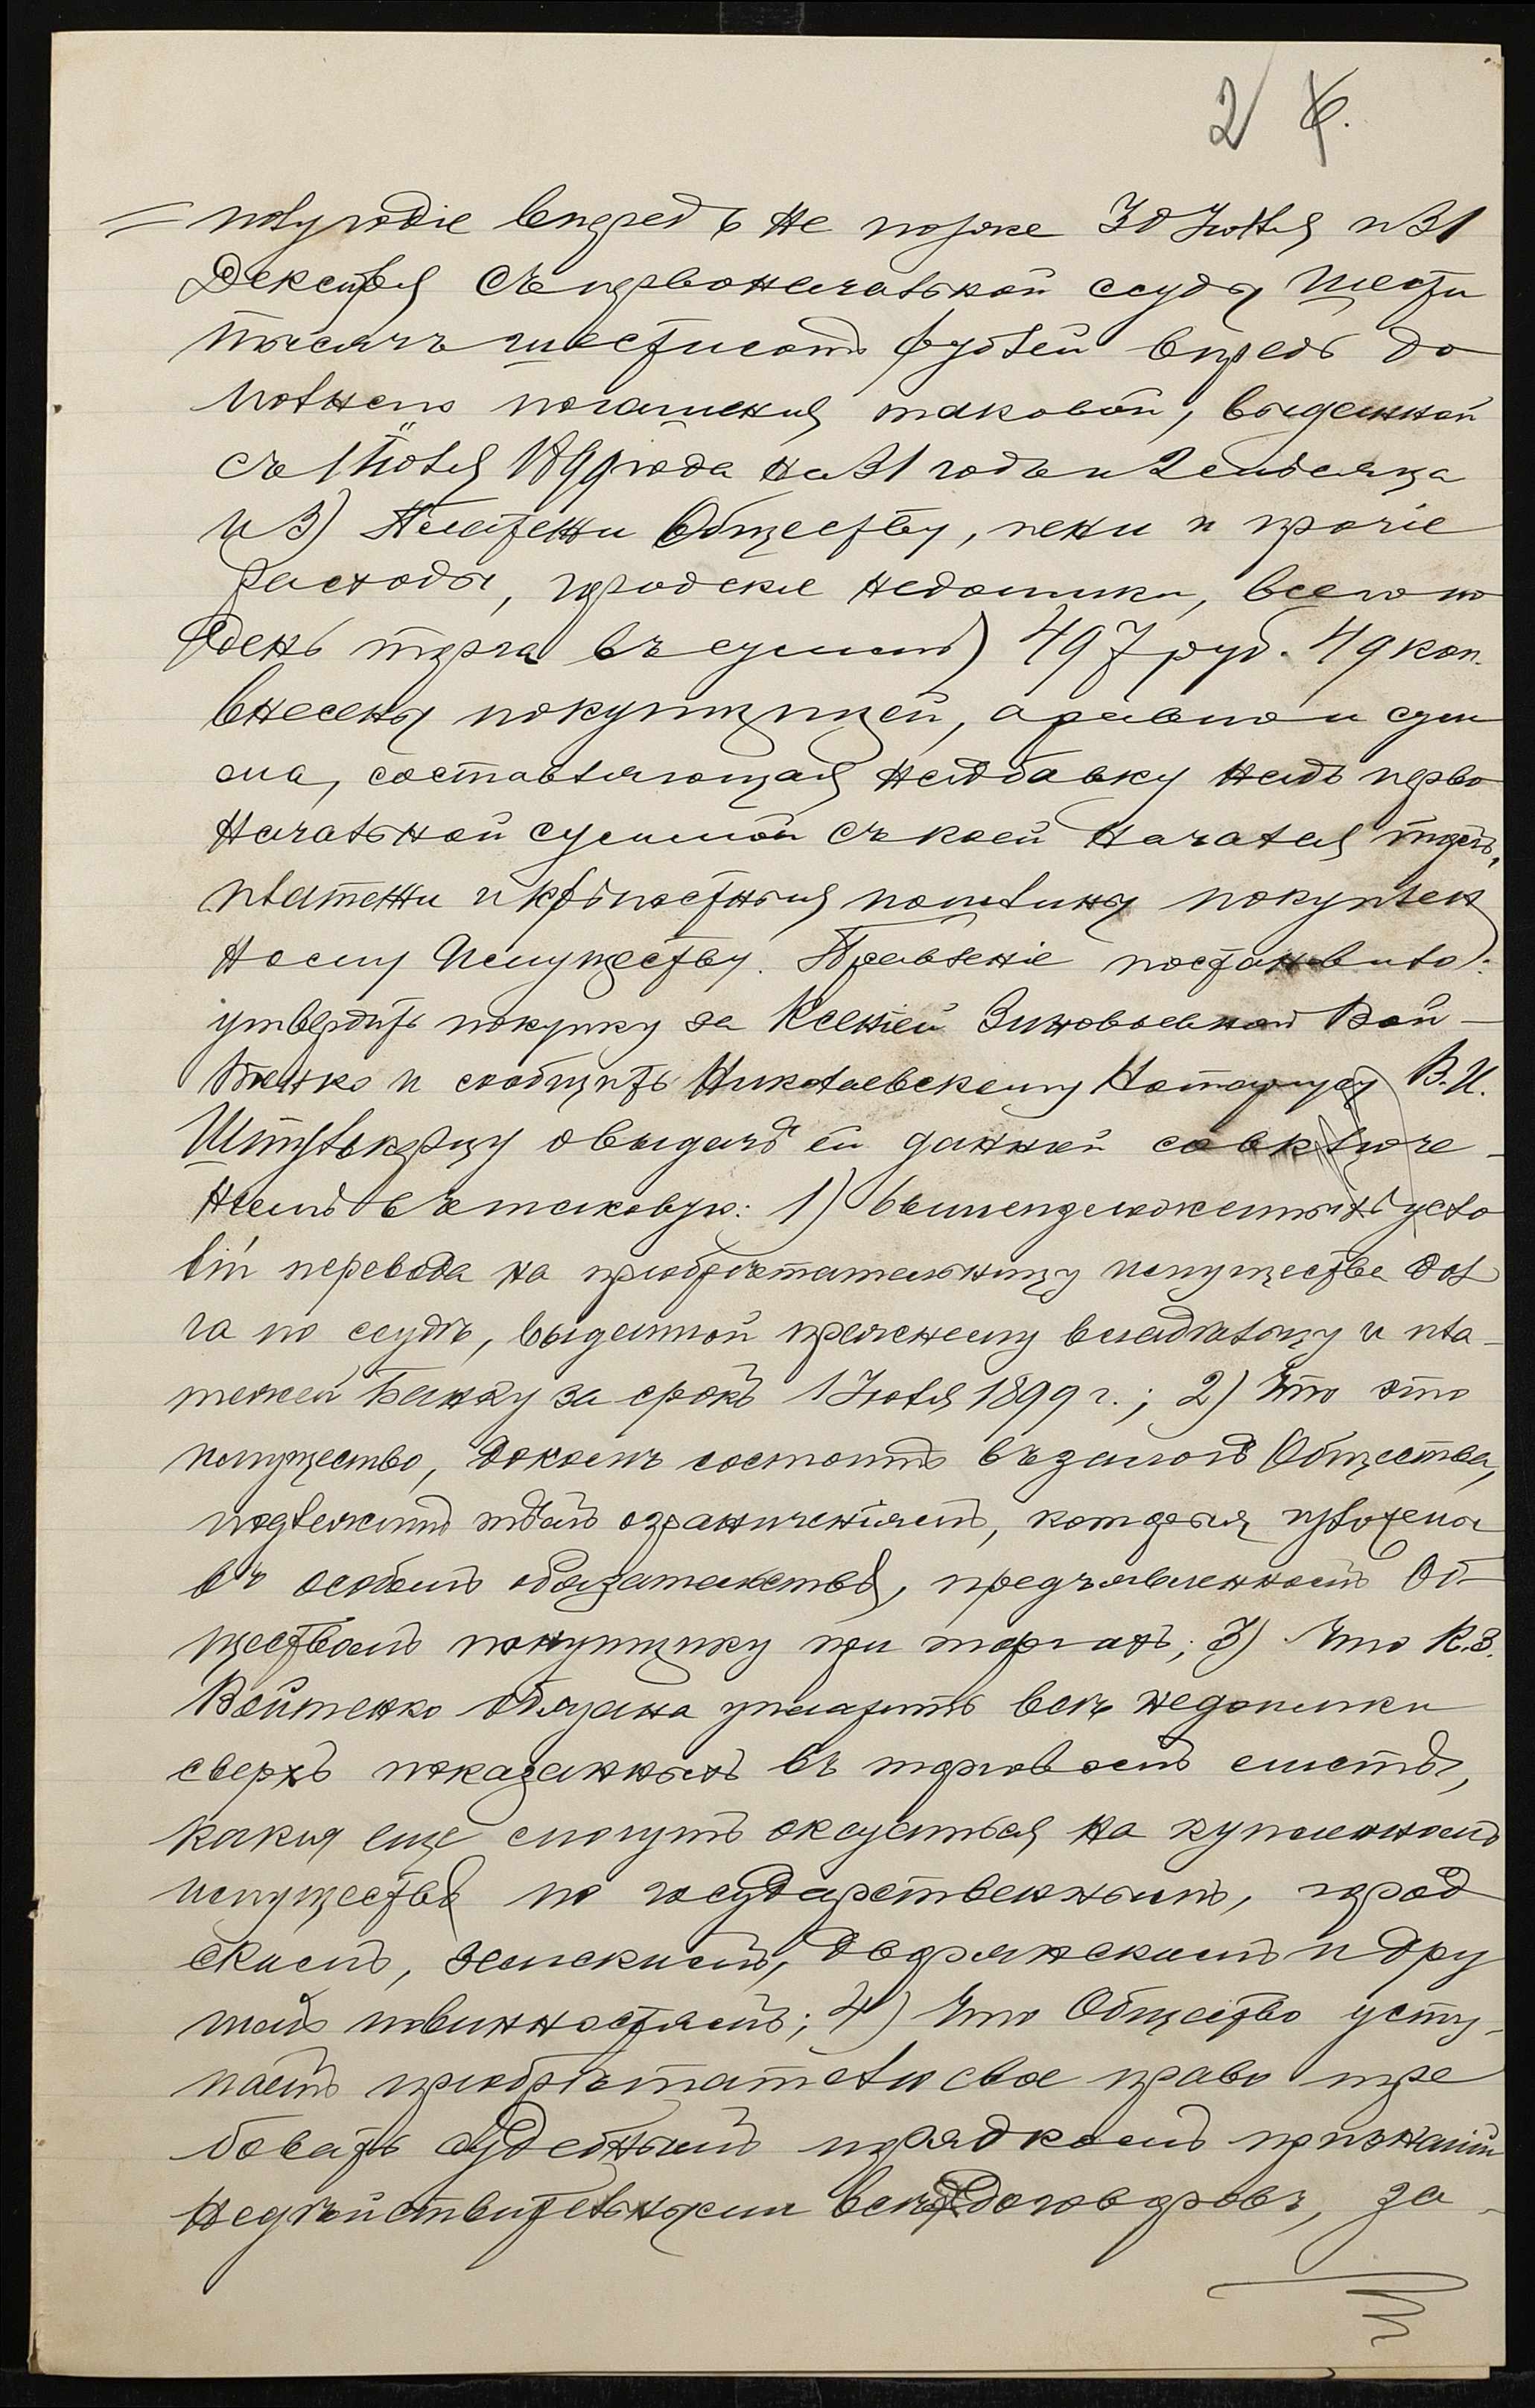 2 6.
полугодіе впередъ не позже 30 Іюня и 31
Декабря съ первоначальной ссуды шести
тысячъ шестисотъ рублей впредь до
полнаго погашенія таковой, выданной
съ 1 Іюля 1899 года на 31 годъ и 2 мѣсяца
и 3) Платежи Обществу, пени и прочіе
расходы, городскіе недоимки, всего по
день торга въ суммѣ 497 руб. 49 коп.
внесены покупщицей, а равно и сум
ма, составляющая надбавку надъ перво
начальной суммой съ коей начался торгъ,
платежи и крѣпостныя пошлины по купчен
ному Имуществу. Правленіе постановило:
утвердить покупку за Ксеніей Зиновьевной Вой-
тенко и сообщить Николаевскому Нотаріусу В. И.
Штулькерцу о выдачѣ ей данной со включе-
ніемъ въ таковую: 1) вышеизложенныхъ усло
вій перевода на пріобрѣтательницу имущества дол
га по ссудѣ, выданной прежнему владѣльцу и пла-
тежей Банку за срокъ 1 Іюля 1899 г.; 2) Что это
имущество, доколѣ состоитъ въ залогѣ Общества,
подлежитъ тѣмъ ограниченіямъ, которыя изложены
въ особомъ обязательствѣ, предъявленномъ Об-
ществомъ покупщику при торгахъ; 3) Что К. З.
Войтенко обязана уплатить всѣ недоимки
сверхъ показанныхъ въ торговомъ листѣ,
какія еще смогутъ оказаться на купленномъ
имуществѣ по государственнымъ, город
скимъ, земскимъ, дворянскимъ и дру
гимъ повинностямъ; 4) Что Общество усту-
паетъ пріобрѣтателю свое право тре
бовать судебнымъ порядкомъ признанія
недѣйствительными всѣхъ договоровъ, за-